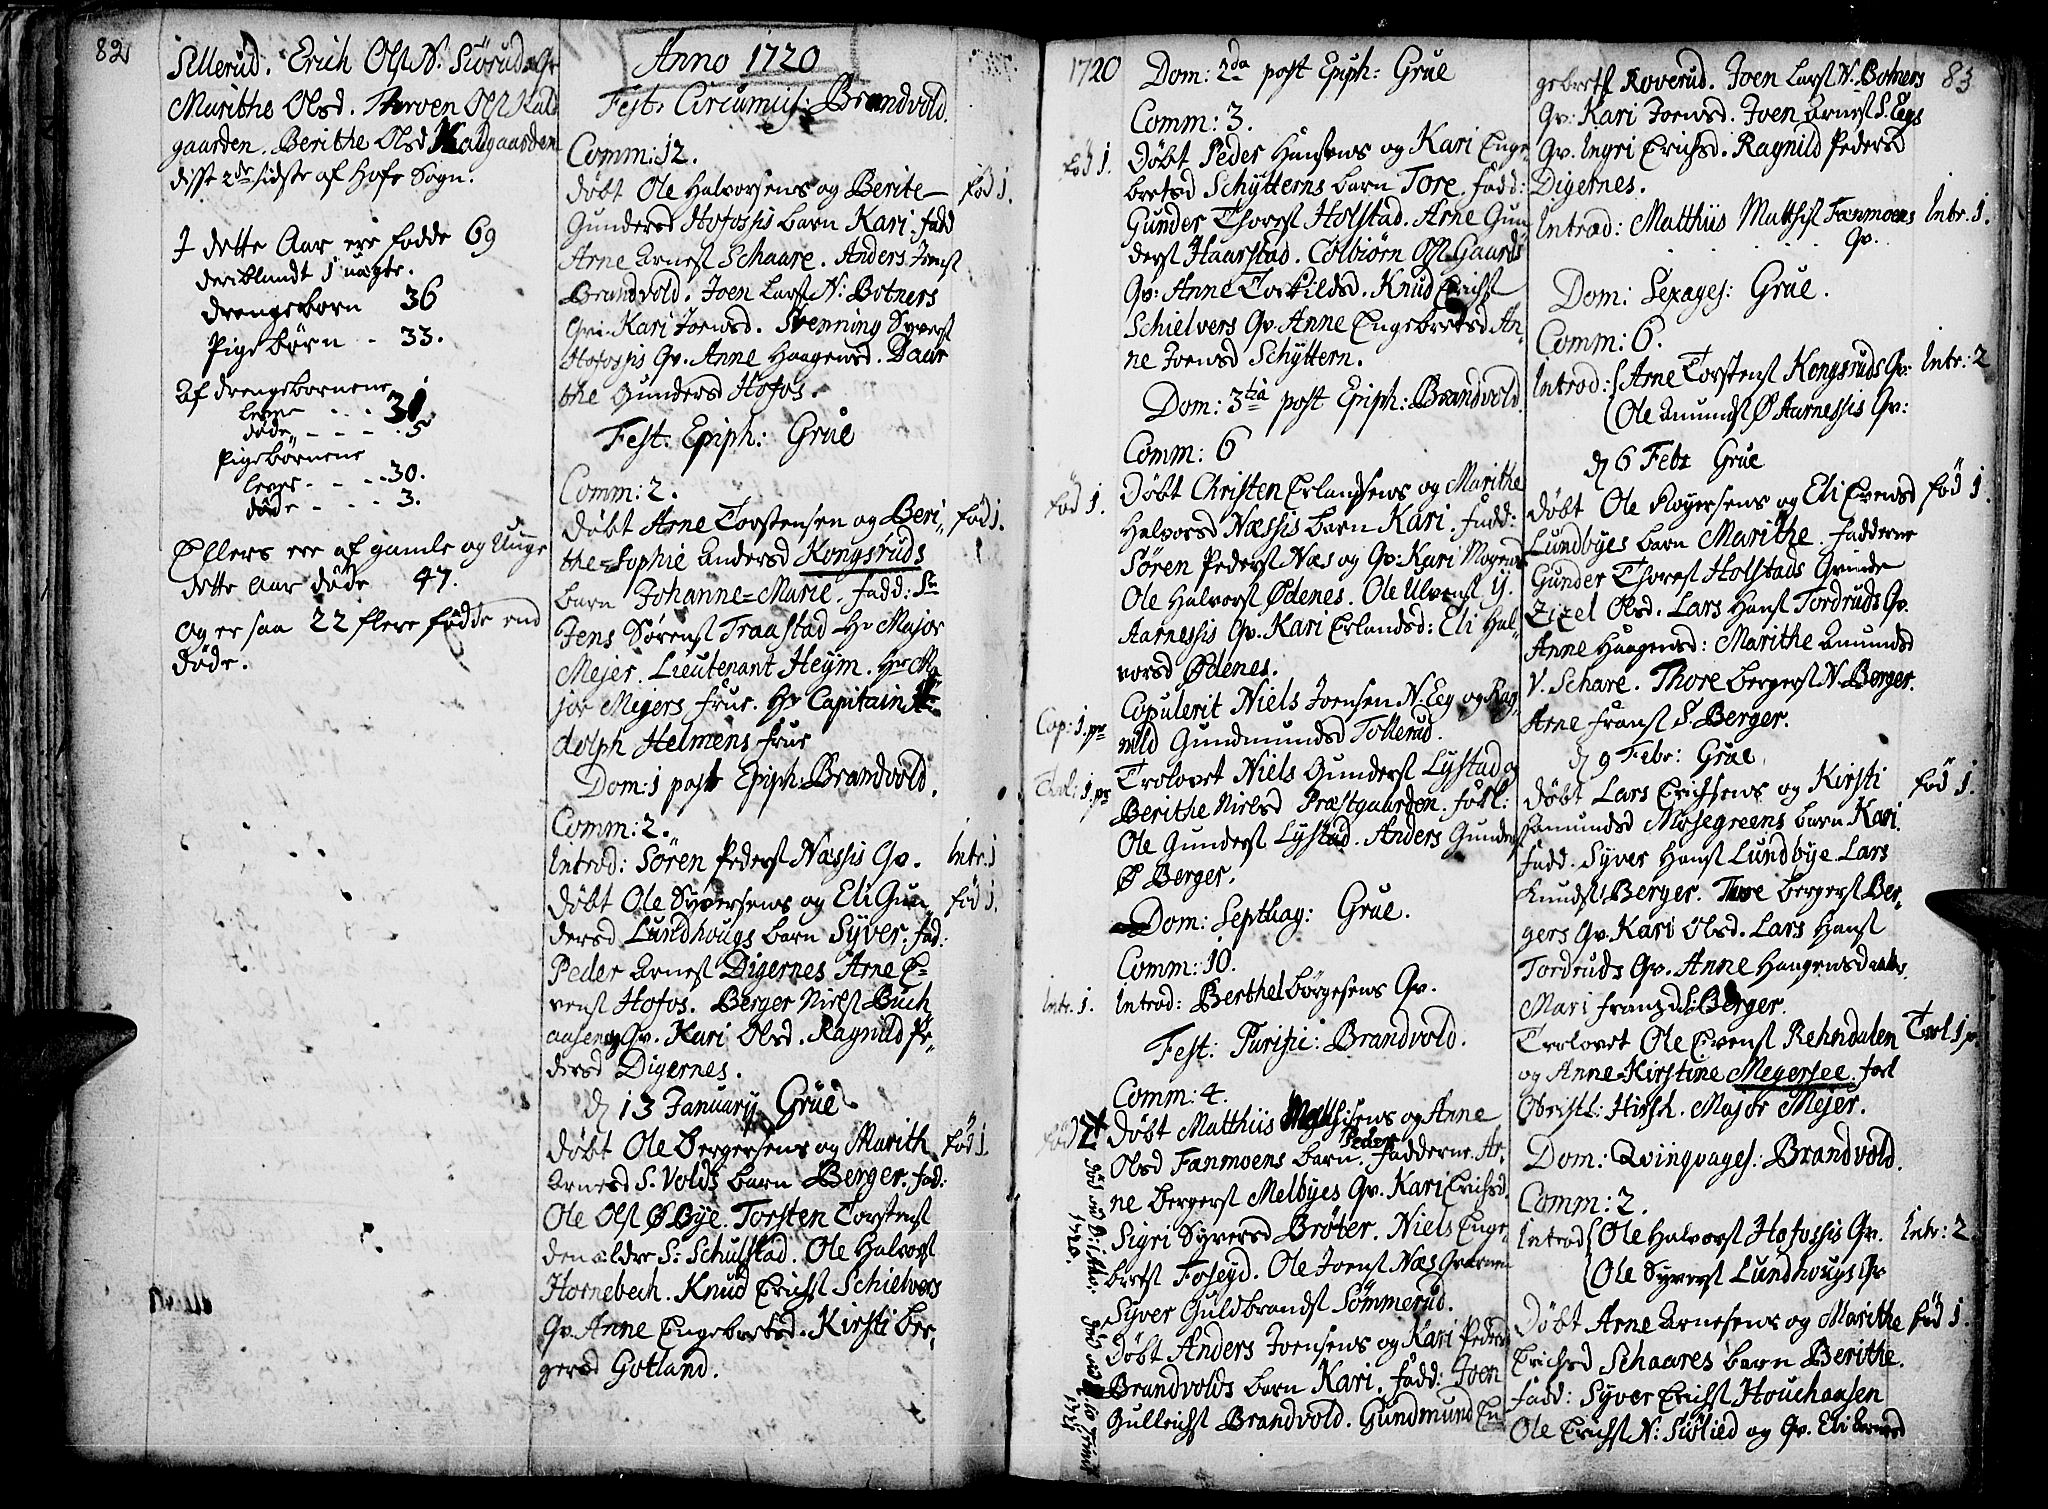 82
Sellerud. Erich Ols N. Siörud Gv
Marithe Olsd. Olss Kald
gaarden. Berithe Olsd Kaldgaarden
disse 2de sidste af Hofs Sogn.
I dette Aar ere fødde 69
deriblandt 1 uægte.
drengebørn 36
Pigebørn - 33.
Af drengebørnene
lever - - - 31
døde - - - - 5
Pigebørnene
lever - - - 30.
døde - - - 3.
Ellers ere af gamle og Unge
dette aar døde 47.
og er saa 22 flere fødde end
døde.
Anno 1720
Fest. Circumcis: Brandvold.
Comm: 12.
døbt Ole Halvorsens og Berite
fød 1.
Gundersd Hofossis barn Kari. fadd
Arne Arness Schaare. Anders Jenss
Brandvold. Joen Larss N: Botners
Gv: Kari Joensd. Svenning Syverss
Hofossis Gv. Anne Haagensd. Daar
the Gundersd Hofos.
Fest. Epiph: Grue
Comm: 2.
døbt Arne Torstensen og Beri-
fød 1.
the=Sophie Andersd Kongsruds
1
barn Johanne=Marie. fadd: Sr
Jens Sørenss Traastad Hr Major
Mejer. Lieutenant Heym. Hr Ma
jor Mejers frue. Hr Capitain
dolph Helmens frue
Dom: 1 post Epiph: Brandvold.
Comm: 2.
Introd: Sören Pederss Næssis Gv.
Intr. 1
døbt Ole Syversens og Eli Gun
fød 1.
dersd Lundhougs barn Syver. fad:
Peder Arness Digernes Arne E-
venss Hofos. Berger Nielss Buch
aasens Gv. Kari Olsd. Ragnild Pe-
dersd Digernes.
d 13 January Grue
døbt Ole Bergersens og Marith
fød 1.
Arnesd S. Volds barn Berger. fad:
Ole Olss Ø Bye. Torsten Torstenss
den ældre S: Schulstad. Ole Halvorss
Hornebech. Knud Erichss Schielvers
Gv. Anne Engebretsd. Kirsti Ber-
gersd Gotland.
1720
Dom: 2da post Epiph: Grue
Comm: 3.
fød 1.
Døbt Peder Hansens og Kari Enge-
bretsd Schytterns barn Tore. fadd:
Gunder Thoress Holstad. Arne Gun
derss Haarstad. Colbiørn Olss Gaards
Gv: Anne Torkildsd. Knud Erichss
Schielvers Gv. Anne Engebretsd An-
ne Joensd Schyttern.
Dom: 3tia post Epiph: Brandvold.
Comm: 6
fød 1.
Døbt Christen Erlandsens og Marithe
Halvorsd Næssis barn Kari. fadd:
Sören Pederss Næs og Gv: Kari Mogensd
Ole Halvorss Ødenes. Ole Ulvenss Y.
Aarnessis Gv. Kari Erlandsd: Eli Hal-
vorsd Ødenes.
Cop: 1. pr
Copulerit Niels Joensen N. Eeg og Rag-
nild Gundmundsd Tollerud.
1. pr
Trolovet Niels Gunderss Lystad og
Berithe Nielsd Præstgaarden. forl:
Ole Gunderss Lystad. Anders Gunderss
Ø Berger.
Dom: Septuag: Grue.
Comm: 10.
Intr. 1.
Introd: Berthel Börgesens Gv.
Fest: Purific: Brandvold.
Comm: 4.
fød 2
Døbt Matthiis Matthisens og Anne
Olsd Fanmoens barn Peder. fadderne Ar-
ne Bergerss Melbyes Gv. Kari Erichsd.
Sigri Syversd Brøter. Niels Enge-
bretss Foseyd. Ole Joenss Næs Gv
Syver Guldbrandss Sömmerud.
Døbt Anders Joensens og Kari Pedersd
Brandvolds barn Kari. fadd: Joen
Gulleichs Brandvold. Gundmund En-
1720.
1721
83
gebretss Roverud. Joen Larss N. Botners
Gv: Kari Joensd. Joen Arness S. Eegs
Gv. Ingri Erichsd. Ragnild Pedersd
Digernes.
Introd: Matthiis Matthiss Fanmoens
Gv.
Intr. 1.
Dom: Sexages: Grue.
Comm: 6.
Introd: Arne Torstenss Kongsruds Gv:
Intr: 2
Ole Amundss Ø Aarnessis Gv:
d 6 Febr Grue
Døbt Ole Royersens og Eli Evensd
fød 1.
Lundbyes barn Marithe. fadderne
Gunder Thoress Holstads Qvinde
Zizel Olsd. Lars Hanss Tordruds Gv.
Anne Haagensd: Marithe Amundsd
V. Schare. Thore Bergerss N. Berger.
Arne Franss S. Berger.
d 9 Febr: Grue.
døbt Lars Erichsens og Kirsti
fød 1.
Hamundsd Mosegreens barn Kari.
fadd: Syver Hanss Lundbye. Lars
Knudss Berger. Thore Bergerss Ber-
gers Gv. Kari Olsd. Lars Hanss
Tordruds Gv. Anne Haagensd
Mari Franzd S. Berger.
Trolovet Ole Evenss Rehndalen
Trol 1 p
og Anne=Kirstine Megersee forl
Obristl: Hirsh. Major Mejer.
Dom: Qvinqvages: Brandvold.
Comm: 2.
Introd Ole Halvorss Hofossis Gv.
Intr: 2
Ole Syverss Lundhougs Gv
Døbt Arne Arnesens og Marithe
fød 1.
Erichsd Schaares barn Berithe.
fadd: Syver Erichss Houchaasen
Ole Erichss N: Siølied og Gv. Eli